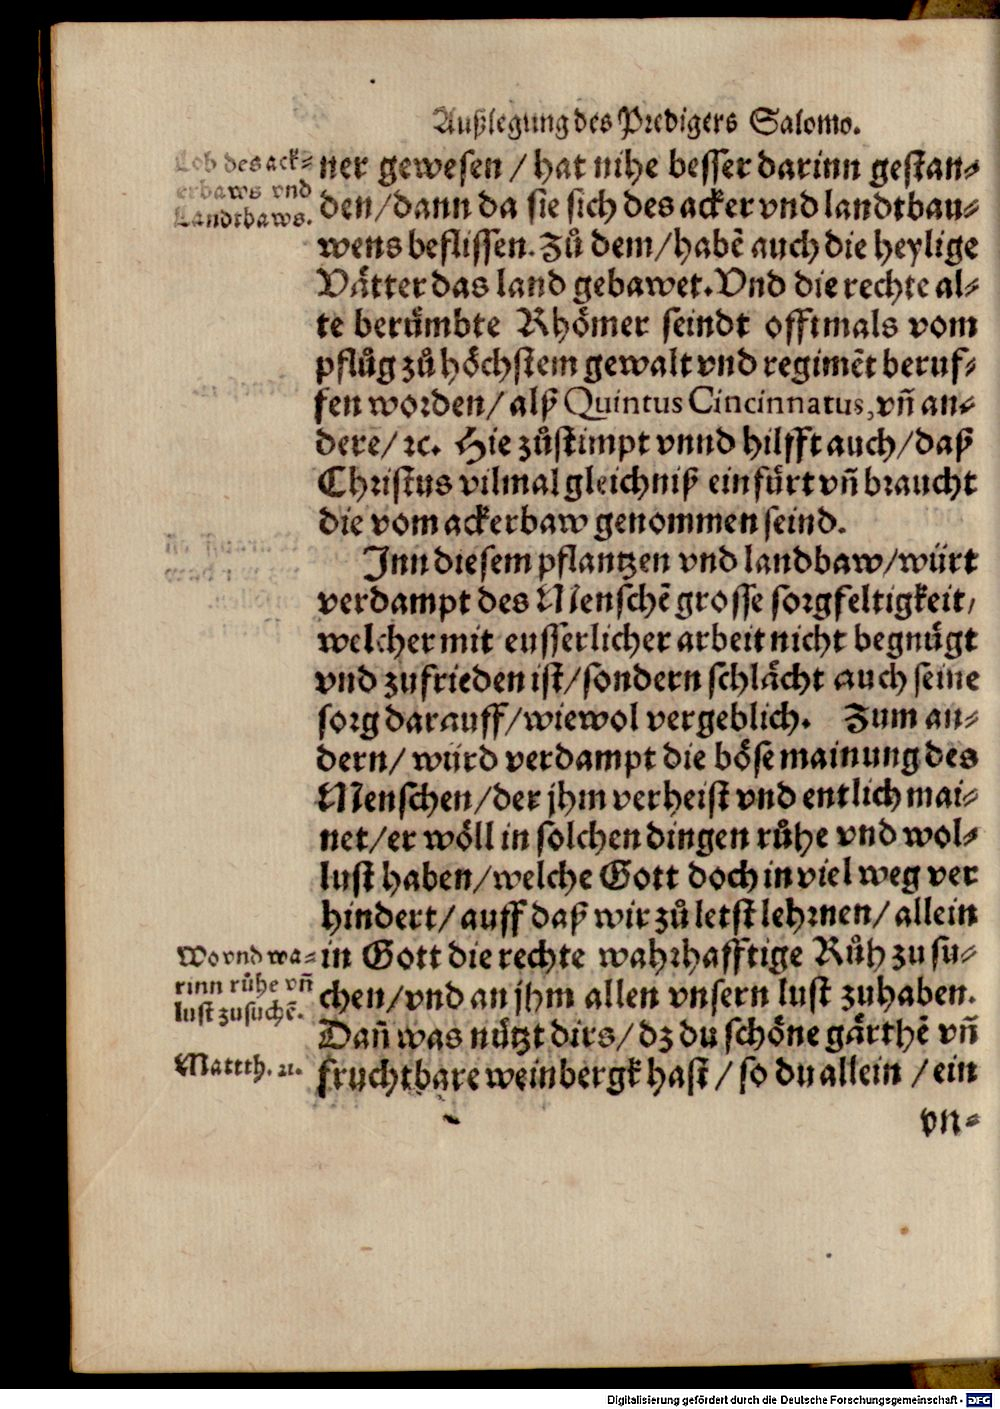 Außlegung des Predigers Salomo.
Lob des ack⸗
erbaws vnd
Landtbaws.
ner gewesen / hat nihe besser darinn gestan⸗
den / dann da sie sich des acker vnd landtbau⸗
wens beflissen. Zů dem / habẽ auch die heylige
Vätter das land gebawet. Vnd die rechte al⸗
te berümbte Rhömer seindt offtmals vom
pflůg zů höchstem gewalt vnd regimẽt beruf⸗
fen worden / alß Quintus Cincinnatus, vñ an⸗
dere / ꝛc. Hie zůstimpt vnnd hilfft auch / daß
Christus vilmal gleichniß einfürt vñ braucht
die vom ackerbaw genommen seind.
Inn diesem pflantzen vnd landbaw / würt
verdampt des Menschẽ grosse sorgfeltigkeit /
welcher mit eusserlicher arbeit nicht begnügt
vnd zufrieden ist / sondern schlächt auch seine
sorg darauff / wiewol vergeblich. Zum an⸗
dern / würd verdampt die böse mainung des
Menschen / der jhm verheist vnd entlich mai⸗
net / er wöll in solchen dingen růhe vnd wol⸗
lust haben / welche Gott doch in viel weg ver
hindert / auff daß wir zů letst lehrnen / allein
in Gott die rechte wahrhafftige Růh zu su⸗
chen / vnd an jhm allen vnsern lust zuhaben.
Dañ was nützt dirs / dz du schöne gärthẽ vñ
fruchtbare weinbergk hast / so du allein / ein
Wo vnd wa⸗
rinn růhe vñ
lust zusuchẽ.
Matth. 11.
vn⸗
Digitalisierung gefördert durch die Deutsche Forschungsgemeinschaft - DFG